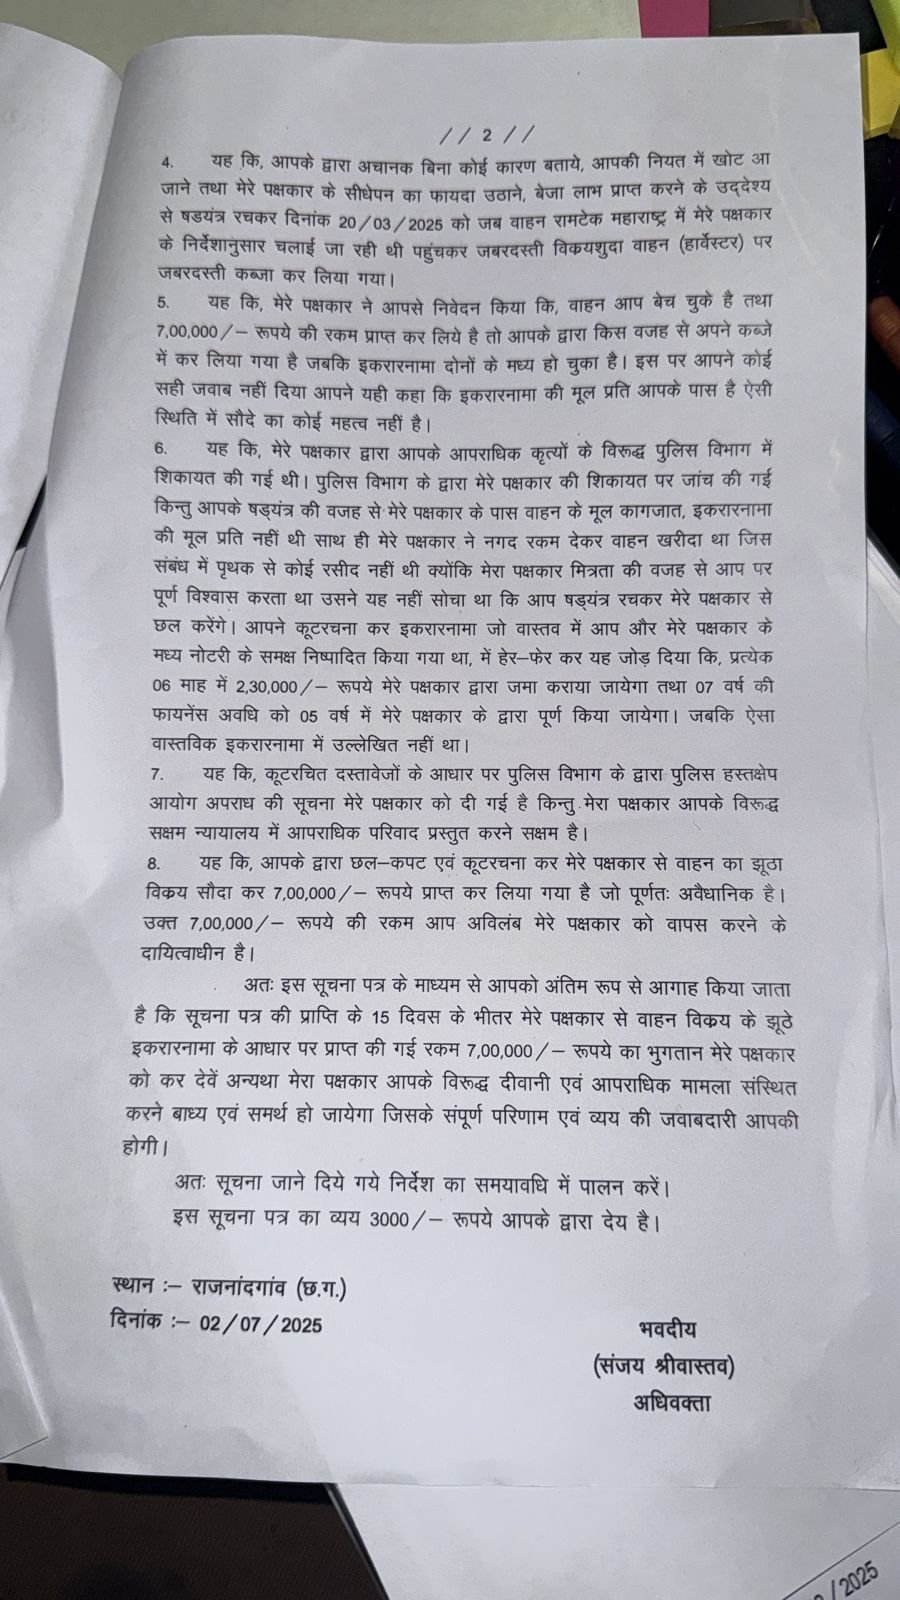 // 2 //
4. यह कि, आपके द्वारा अचानक बिना कोई कारण बताये, आपकी नियत में खोट आ
जाने तथा मेरे पक्षकार के सीधेपन का फायदा उठाने, बेजा लाभ प्राप्त करने के उद्देश्य
से षडयंत्र रचकर दिनांक 20/03/2025 को जब वाहन रामटेक महाराष्ट्र में मेरे पक्षकार
के निर्देशानुसार चलाई जा रही थी पहुंचकर जबरदस्ती विक्रयशुदा वाहन (हार्वेस्टर) पर
जबरदस्ती कब्जा कर लिया गया।
5. यह कि, मेरे पक्षकार ने आपसे निवेदन किया कि, वाहन आप बेच चुके है तथा
7,00,000/– रूपये की रकम प्राप्त कर लिये है तो आपके द्वारा किस वजह से अपने कब्जे
में कर लिया गया है जबकि इकरारनामा दोनों के मध्य हो चुका है। इस पर आपने कोई
सही जवाब नहीं दिया आपने यही कहा कि इकरारनामा की मूल प्रति आपके पास है ऐसी
स्थिति में सौदे का कोई महत्व नहीं है।
6. यह कि, मेरे पक्षकार द्वारा आपके आपराधिक कृत्यों के विरूद्ध पुलिस विभाग में
शिकायत की गई थी। पुलिस विभाग के द्वारा मेरे पक्षकार की शिकायत पर जांच की गई
किन्तु आपके षड्यंत्र की वजह से मेरे पक्षकार के पास वाहन के मूल कागजात, इकरारनामा
की मूल प्रति नहीं थी साथ ही मेरे पक्षकार ने नगद रकम देकर वाहन खरीदा था जिस
संबंध में पृथक से कोई रसीद नहीं थी क्योंकि मेरा पक्षकार मित्रता की वजह से आप पर
पूर्ण विश्वास करता था उसने यह नहीं सोचा था कि आप षड्यंत्र रचकर मेरे पक्षकार से
छल करेंगे। आपने कूटरचना कर इकरारनामा जो वास्तव में आप और मेरे पक्षकार के
मध्य नोटरी के समक्ष निष्पादित किया गया था, में हेर–फेर कर यह जोड़ दिया कि, प्रत्येक
06 माह में 2,30,000/– रूपये मेरे पक्षकार द्वारा जमा कराया जायेगा तथा 07 वर्ष की
फायनेंस अवधि को 05 वर्ष में मेरे पक्षकार के द्वारा पूर्ण किया जायेगा। जबकि ऐसा
वास्तविक इकरारनामा में उल्लेखित नहीं था।
7. यह कि, कूटरचित दस्तावेजों के आधार पर पुलिस विभाग के द्वारा पुलिस हस्तक्षेप
आयोग अपराध की सूचना मेरे पक्षकार को दी गई है किन्तु मेरा पक्षकार आपके विरूद्ध
सक्षम न्यायालय में आपराधिक परिवाद प्रस्तुत करने सक्षम है।
8. यह कि, आपके द्वारा छल–कपट एवं कूटरचना कर मेरे पक्षकार से वाहन का झूठा
विक्रय सौदा कर 7,00,000/– रूपये प्राप्त कर लिया गया है जो पूर्णतः अवैधानिक है।
उक्त 7,00,000/– रूपये की रकम आप अविलंब मेरे पक्षकार को वापस करने के
दायित्वाधीन है।
अतः इस सूचना पत्र के माध्यम से आपको अंतिम रूप से आगाह किया जाता
है कि सूचना पत्र की प्राप्ति के 15 दिवस के भीतर मेरे पक्षकार से वाहन विक्रय के झूठे
इकरारनामा के आधार पर प्राप्त की गई रकम 7,00,000/– रूपये का भुगतान मेरे पक्षकार
को कर देवें अन्यथा मेरा पक्षकार आपके विरूद्ध दीवानी एवं आपराधिक मामला संस्थित
करने बाध्य एवं समर्थ हो जायेगा जिसके संपूर्ण परिणाम एवं व्यय की जवाबदारी आपकी
होगी।
अतः सूचना जाने दिये गये निर्देश का समयावधि में पालन करें।
इस सूचना पत्र का व्यय 3000/– रूपये आपके द्वारा देय है।
स्थान :– राजनांदगांव (छ.ग.)
दिनांक :– 02/07/2025
भवदीय
(संजय श्रीवास्तव)
अधिवक्ता
/2025